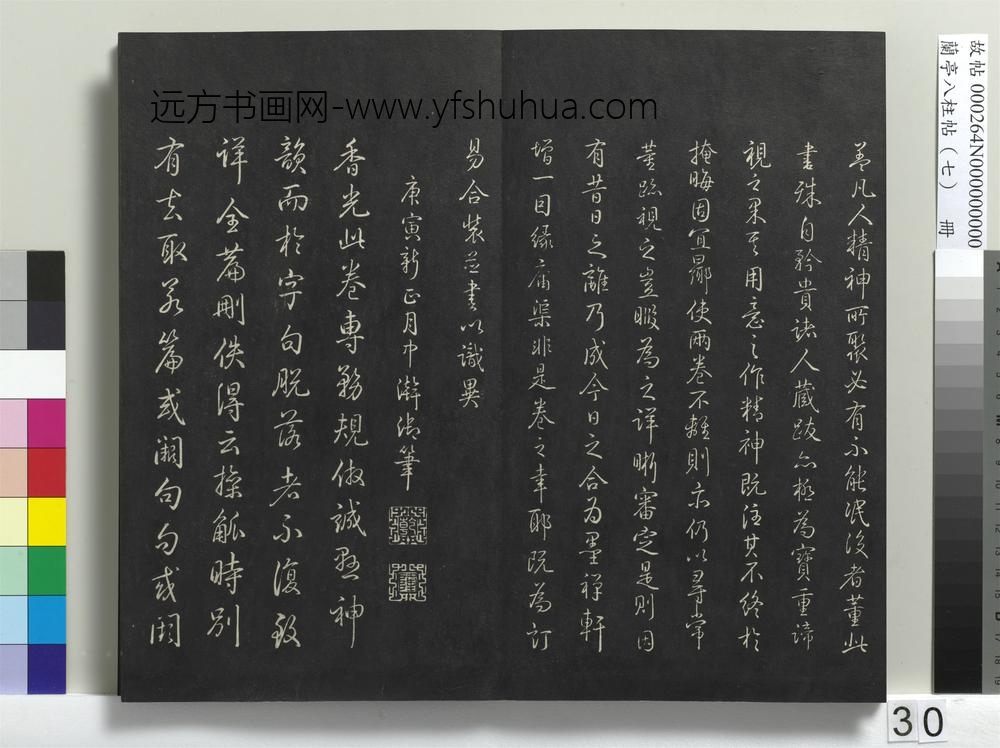 远方书画网-www.yfshuhua.com
故帖 000264N000000000
蘭亭八柱帖（七） 冊
蓋凡人精神所聚必有不能泯沒者董此
書殊自矜貴諸人藏跋亦極為寶重諦
視之果其用意之作精神既注其不終於
掩晦固宜曏使兩卷不離則亦仍以尋常
董跡視之豈暇為之詳晰審定是則因
有昔日之離乃成今日之合為墨禪軒
增一因緣庸渠非是卷之幸耶既為訂
易合裝並書以識異
庚寅新正月中澣御筆
香光此卷專務規倣誠懸神
韻而於字句脫落者不復致
詳全篇刪佚得云操觚時別
有去取若篇或闕句句或闕
30